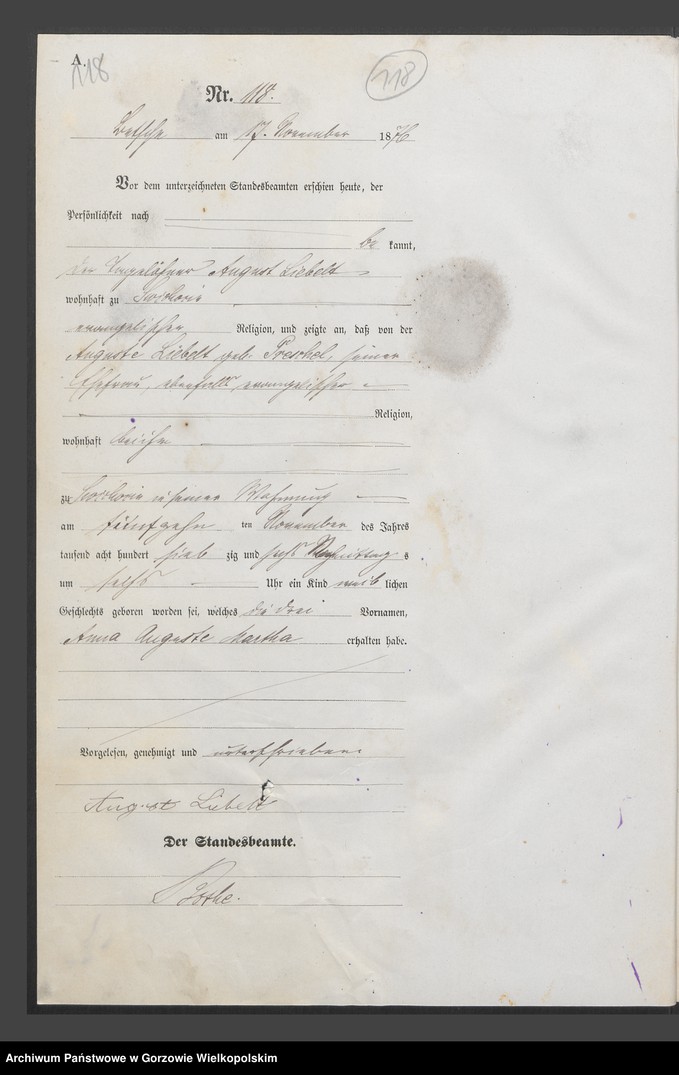 A.
118
118
Nr. 118.
Betsche am 17. November 1876
Vor dem unterzeichneten Standesbeamten erschien heute, der
Persönlichkeit nach
be kannt,
der Tagelöhner August Liebelt
wohnhaft zu
evangelischer Religion, und zeigte an, daß von der
Auguste Liebelt geb. Preschel, seiner
Ehefrau, ebenfalls evangelischer
Religion,
wohnhaft bei ihm
zu in seiner Wohnung
am fünfzehn ten November des Jahres
tausend acht hundert sieb zig und sechs Nachmittag s
um sechs Uhr ein Kind weib lichen
Geschlechts geboren worden sei, welches die drei Vornamen,
Anna Auguste Martha erhalten habe.
Vorgelesen, genehmigt und unterschrieben
August Liebelt
Der Standesbeamte.
Archiwum Państwowe w Gorzowie Wielkopolskim